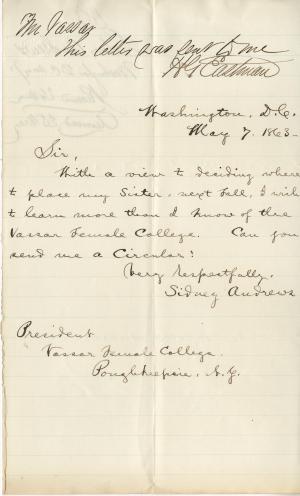 Mr Vassar
This letter was sent to me
H G Eastman
Washington, D.C.
May 7, 1863-
Sir,
With a view to deciding where
to place my Sister, next Fall, I wish
to learn more than I know of the
Vassar Female College. Can you
send me a Circular?
Very respectfully,
Sidney Andrews
President
Vassar Female College.
Poughkeepsie, N.Y.